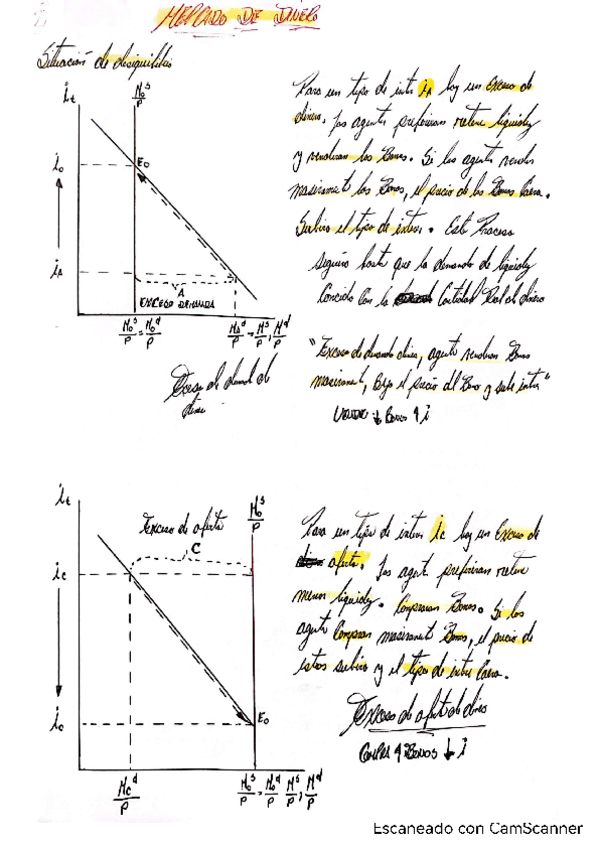 MERCADO DE DINERO
Situación de desequilibrio
it
M₀ˢ/P
i₀
E₀
iA
A
EXCESO DEMANDA
M₀ˢ/P = M₀ᵈ/P
Mˢ/P, Mᵈ/P
Exceso de demand de
Para un tipo de inter iA hay un exceso de
dinero. Los agents prefieren retener liquidez
y venderan los Bonos. Si los agents venden
masivament los Bonos, el precio de los Bonos Caera.
Subira el tipo de interes. Este Proceso
seguira hasta que la demanda de liquidez
Coincida Con la Cantidad Real de dinero
"Exceso de demanda dinero, agents venderan Bonos
masivament, baja el precio del Bono y sube inter"
VENDE ↓ Bonos ↑ i
it
M₀ˢ/P
Exceso de oferta
C
ic
i₀
E₀
Mcᵈ/P
M₀ˢ/P = M₀ᵈ/P Mˢ/P, Mᵈ/P
Para un tipo de interes ic hay un Exceso de
oferta. Los agent. prefieren retener
menos liquidez. Compraran Bonos. Si los
agents Compran masivament Bonos, el precio de
estos subira y el tipo de inter Caera.
Exceso de oferta de dinero
COMPRA ↑ BONOS ↓ i
Escaneado con CamScanner